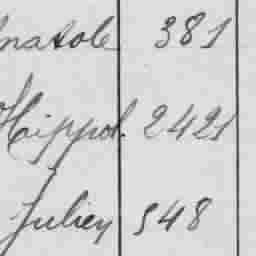 natole 381
Hippol. 2421
Julien 548